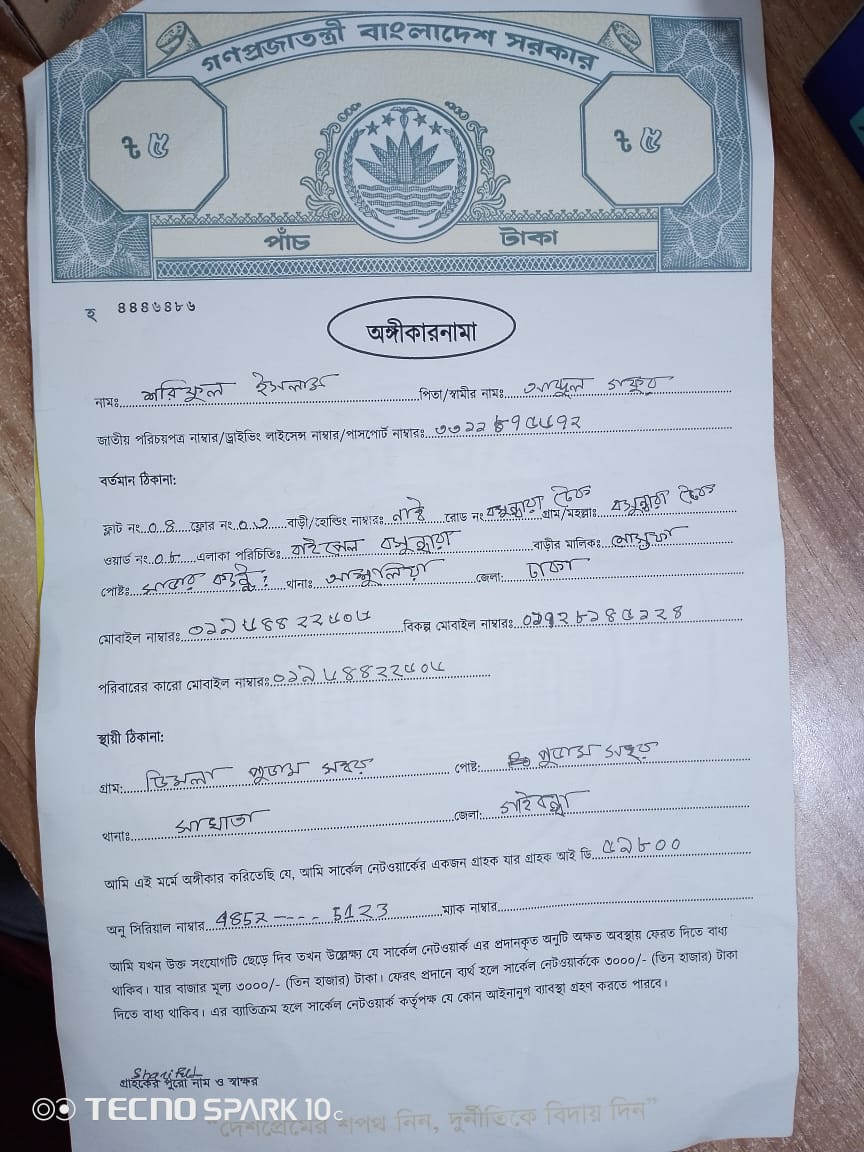 গণপ্রজাতন্ত্রী বাংলাদেশ সরকার
৳ ৫ ৳ ৫
পাঁচ টাকা
হ ৪৪৪৬৪৮৬
অঙ্গীকারনামা
নামঃ শরিফুল ইসলাম পিতা/স্বামীর নামঃ আব্দুল গফুর
জাতীয় পরিচয়পত্র নাম্বার/ড্রাইভিং লাইসেন্স নাম্বার/পাসপোর্ট নাম্বারঃ
বর্তমান ঠিকানা:
ফ্লাট নং ০৪ ফ্লোর নং ০১ বাড়ী/হোল্ডিং নাম্বারঃ নাই রোড নং বসুন্ধরা টেক গ্রাম/মহল্লাঃ বসুন্ধরা টেক
ওয়ার্ড নং ০৮ এলাকা পরিচিতিঃ বাইপেল বসুন্ধরা বাড়ীর মালিকঃ
পোষ্টঃ সাভার থানাঃ আশুলিয়া জেলা: ঢাকা
মোবাইল নাম্বারঃ ০১৯৫৪৪২২৫০৫ বিকল্প মোবাইল নাম্বারঃ
পরিবারের কারো মোবাইল নাম্বারঃ ০১৯৫৪৪২২৫০৫
স্থায়ী ঠিকানা:
গ্রাম: পোষ্ট:
থানাঃ সাঘাটা জেলা: গাইবান্ধা
আমি এই মর্মে অঙ্গীকার করিতেছি যে, আমি সার্কেল নেটওয়ার্কের একজন গ্রাহক যার গ্রাহক আই ডি ৫৯৮০০
অনু সিরিয়াল নাম্বার 4852 ---- 5123 ম্যাক নাম্বার
আমি যখন উক্ত সংযোগটি ছেড়ে দিব তখন উল্লেক্ষ্য যে সার্কেল নেটওয়ার্ক এর প্রদানকৃত অনুটি অক্ষত অবস্থায় ফেরত দিতে বাধ্য
থাকিব। যার বাজার মূল্য ৩০০০/- (তিন হাজার) টাকা। ফেরৎ প্রদানে ব্যর্থ হলে সার্কেল নেটওয়ার্ককে ৩০০০/- (তিন হাজার) টাকা
দিতে বাধ্য থাকিব। এর ব্যতিক্রম হলে সার্কেল নেটওয়ার্ক কর্তৃপক্ষ যে কোন আইনানুগ ব্যাবস্থা গ্রহণ করতে পারবে।
Shariful
গ্রাহকের পুরো নাম ও স্বাক্ষর
TECNO SPARK 10C
"দেশপ্রেমের শপথ নিন, দুর্নীতিকে বিদায় দিন"